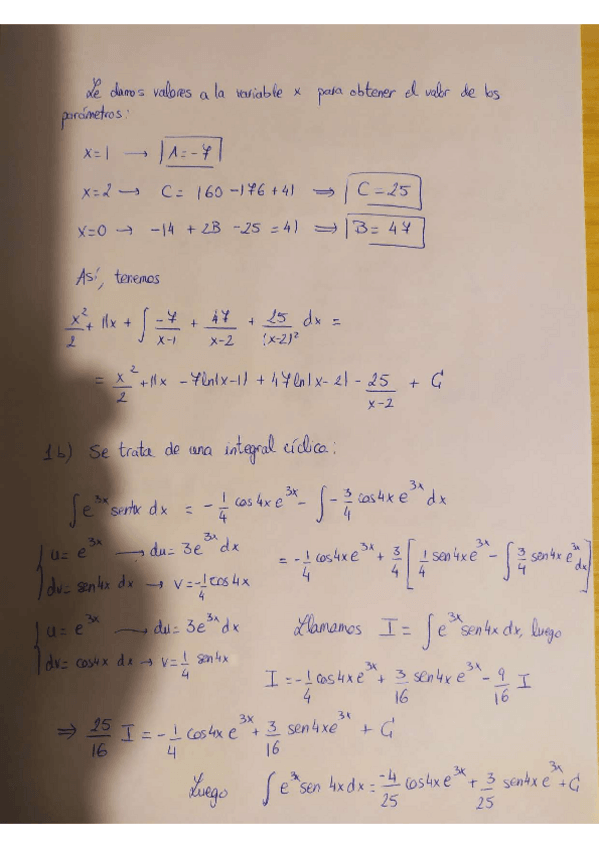 Le damos valores a la variable x para obtener el valor de los
parámetros:
x=1 → |A=-7|
x=2 → C= 160-176+41 ⇒ |C=25|
x=0 → -14 + 2B -25 = 41 ⇒ |B=47|
Así, tenemos
x²/2 + 11x + ∫ -7/(x-1) + 47/(x-2) + 25/(x-2)² dx =
= x²/2 + 11x - 7ln|x-1| + 47ln|x-2| - 25/(x-2) + C
1b) Se trata de una integral cíclica:
∫e^{3x} sen4x dx = -1/4 cos4x e^{3x} - ∫ -3/4 cos4x e^{3x} dx
u= e^{3x} → du= 3e^{3x} dx
dv= sen4x dx → v=-1/4 cos4x
= -1/4 cos4x e^{3x} + 3/4 [1/4 sen4x e^{3x} - ∫ 3/4 sen4x e^{3x} dx]
u= e^{3x} → du= 3e^{3x} dx
dv= cos4x dx → v= 1/4 sen4x
Llamamos I = ∫e^{3x} sen4x dx, luego
I = -1/4 cos4x e^{3x} + 3/16 sen4x e^{3x} - 9/16 I
⇒ 25/16 I = -1/4 cos4x e^{3x} + 3/16 sen4x e^{3x} + C
Luego ∫e^{3x} sen 4x dx = -4/25 cos4x e^{3x} + 3/25 sen4x e^{3x} + C